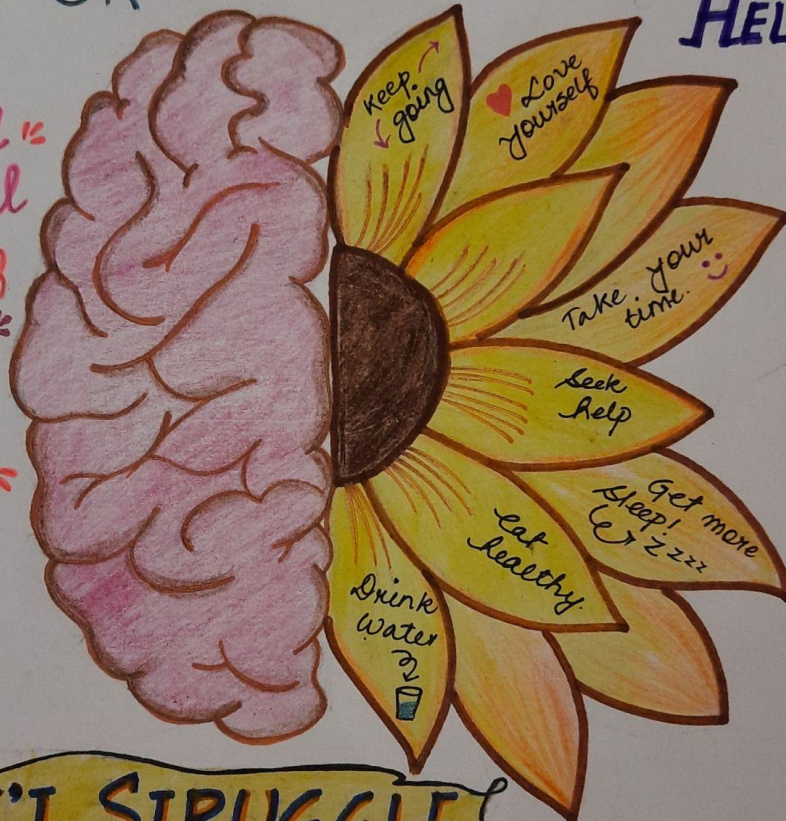 OR
HEL
Keep
going
Love
Yourself
Take Your
time.
Seek
help
Get more
Sleep!
Zzzz
eat
healthy.
Drink
Water
'T STRUGGLE